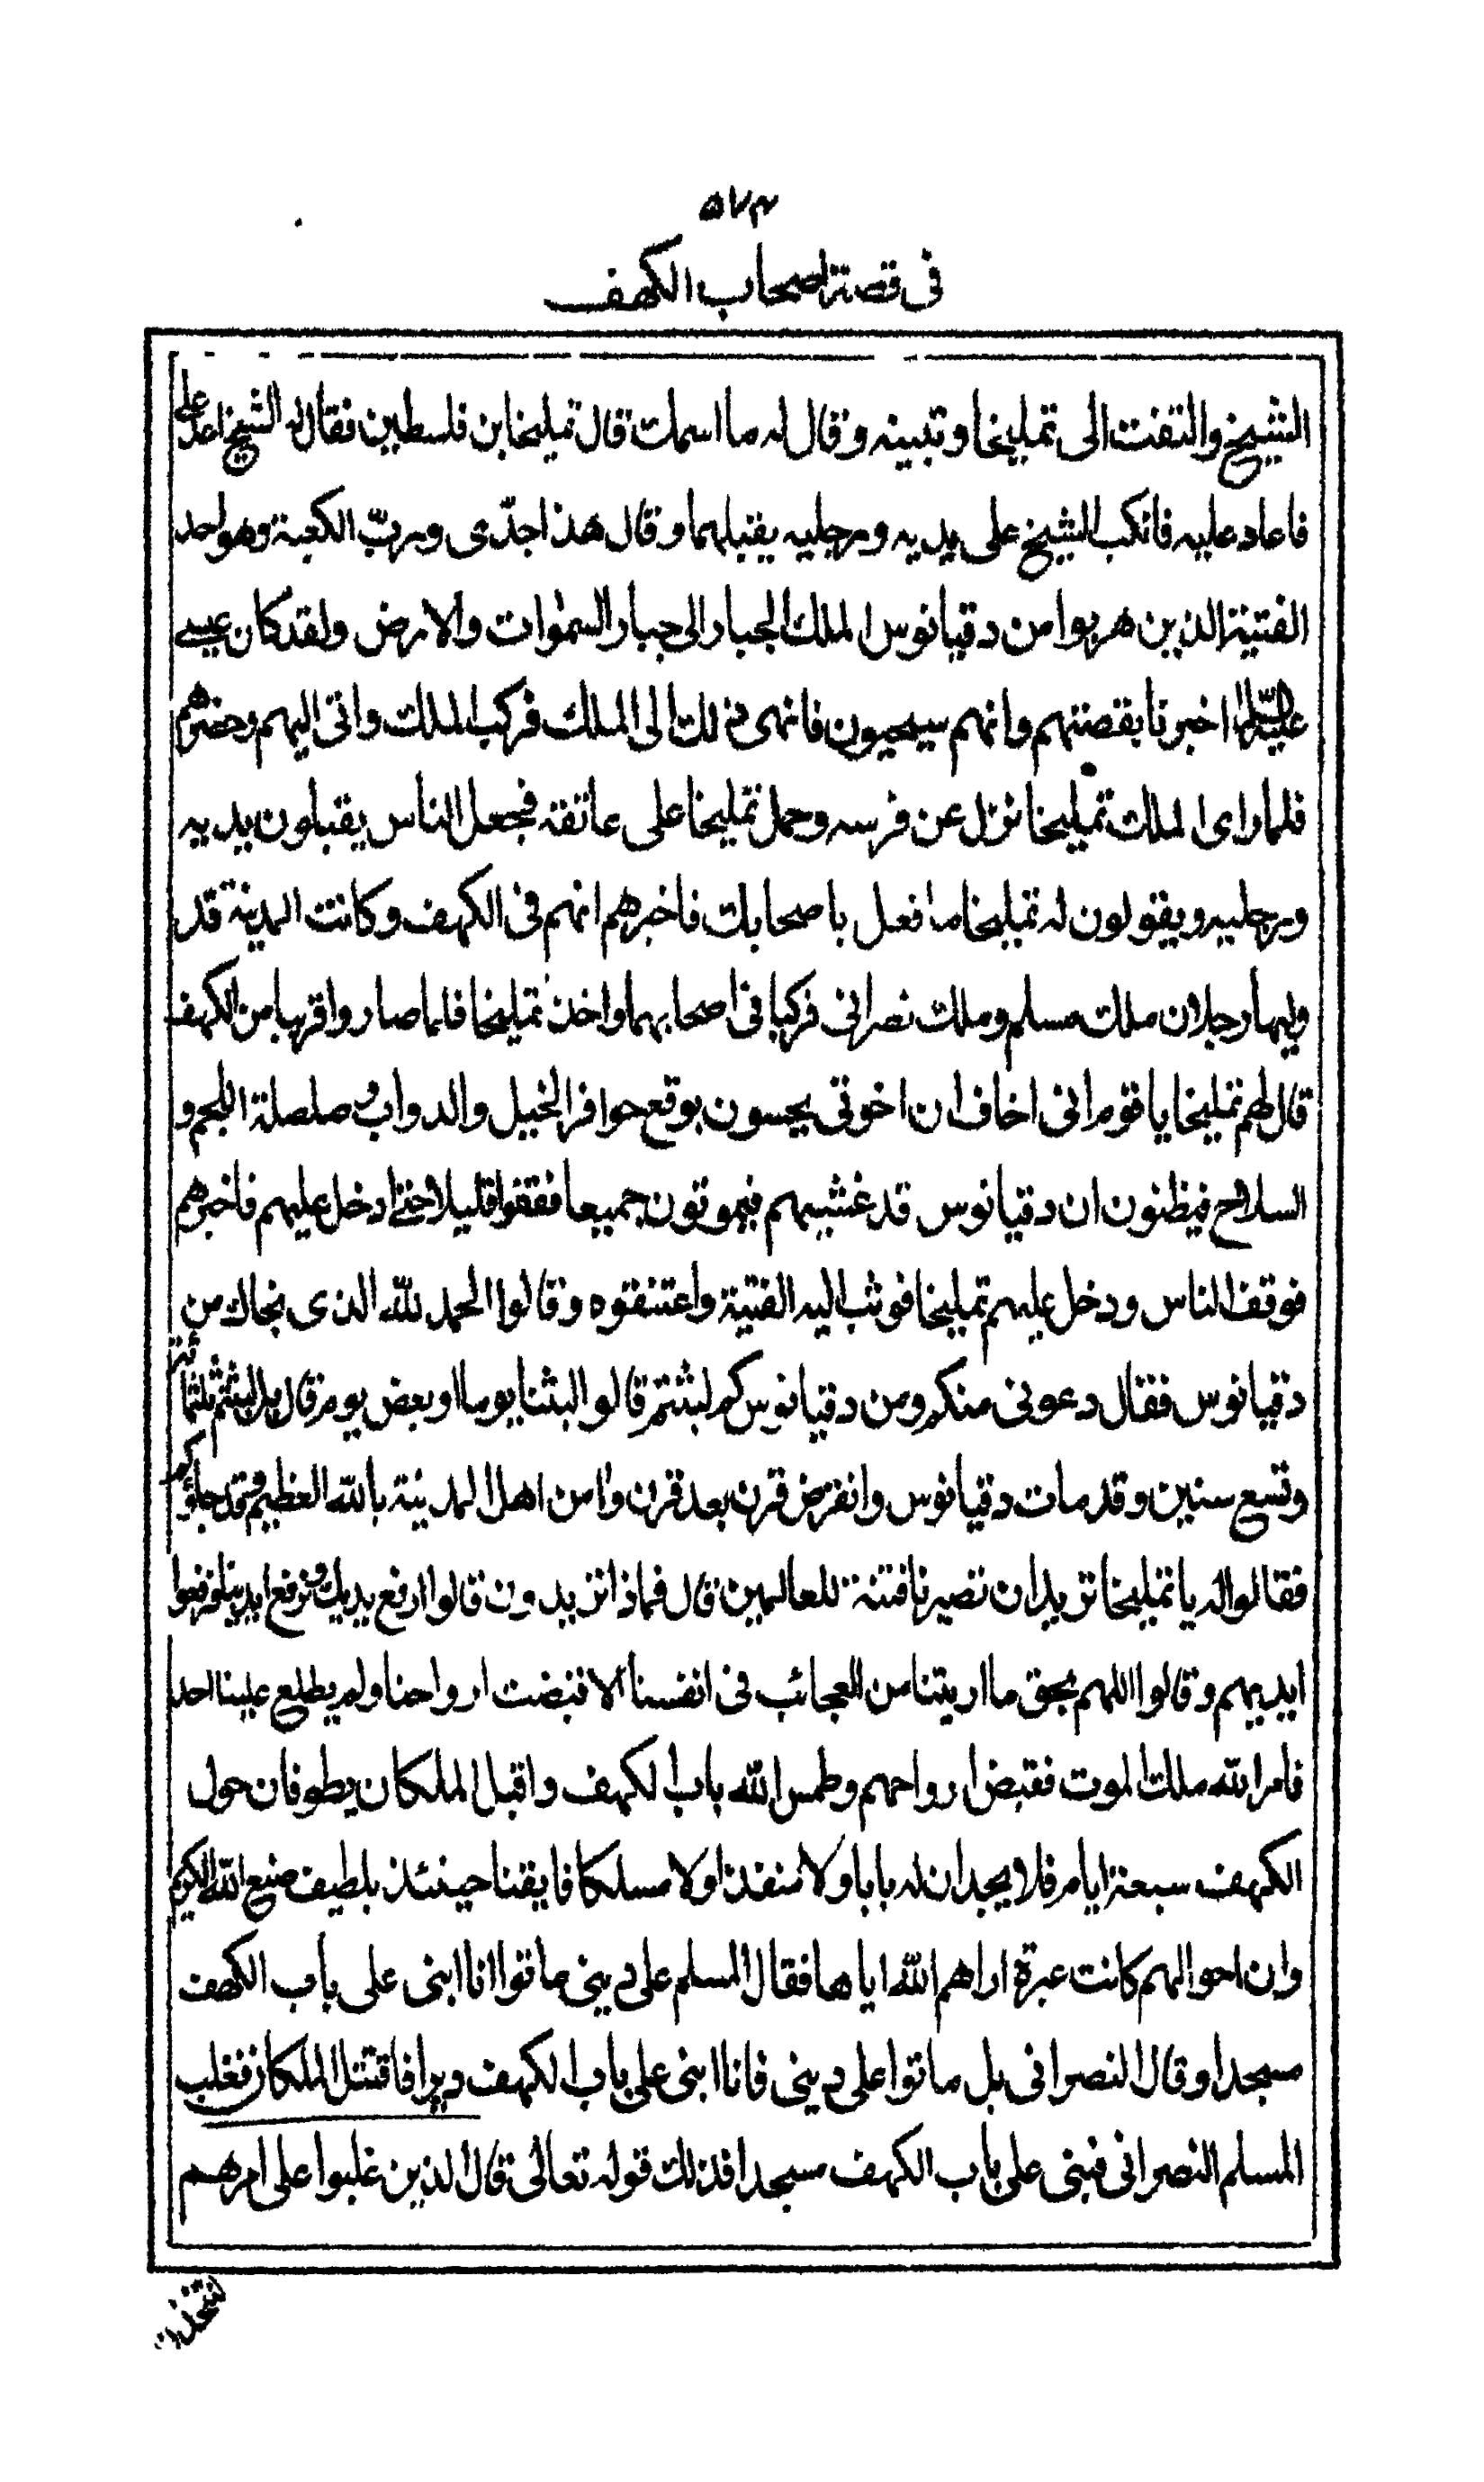 ٥٧٣
فى قصة اصحاب الكهف
الشيخ والتفت الى تمليخا وتبينه وقال له ما اسمك قال تمليخا بن فلسطين فقال له الشيخ اعد علىّ
فاعاد عليه فانكب الشيخ على يديه ورجليه يقبلهما وقال هذا جدّى وربّ الكعبة وهو احد
الفتية الذين هربوا من دقيانوس الملك الجبار الى جبار السموات والارض ولقد كان عيسى
عليه السلام اخبرنا بقصتهم وانهم سيحيون فانهى ذلك الى الملك فركب الملك واتى اليهم وحضرهم
فلما راى الملك تمليخا نزل عن فرسه وحمل تمليخا على عاتقه فجعل الناس يقبلون يديه
ورجليه ويقولون له تمليخا ما فعل باصحابك فاخبرهم انهم فى الكهف وكانت المدينة قد
وليها رجلان ملك مسلم وملك نصرانى فركبا فى اصحابهما واخذ تمليخا فلما صاروا قريبا من الكهف
قال لهم تمليخا يا قوم انى اخاف ان اخوتى يحسون بوقع حوافر الخيل والدواب وصلصلة اللجم و
السلاح فيظنون ان دقيانوس قد غشيهم فيموتون جميعا فقفوا قليلا حتى ادخل عليهم فاخبرهم
فوقف الناس ودخل عليهم تمليخا فوثب اليه الفتية واعتنقوه وقالوا الحمد لله الذى نجاك من
دقيانوس فقال دعونى منكم ومن دقيانوس كم لبثتم قالوا لبثنا يوما او بعض يوم قال بل لبثتم ثلثمائة
وتسع سنين وقد مات دقيانوس وانقرض قرن بعد قرن وامن اهل المدينة بالله العظيم وقد جاؤكم
فقالوا له يا تمليخا تريد ان تصيرنا فتنة للعالمين قال فماذا تريدون قالوا ارفع يديك ونرفع ايدينا فرفعوا
ايديهم وقالوا اللهم بحق ما اريتنا من العجائب فى انفسنا الا قبضت ارواحنا ولم يطلع علينا احد
فامر الله ملك الموت فقبض ارواحهم وطمس الله باب الكهف واقبل الملكان يطوفان حول
الكهف سبعة ايام فلا يجدان له بابا ولا منفذا ولا مسلكا فايقنا حينئذ بلطيف صنيع الله الكريم
وان احوالهم كانت عبرة اراهم الله اياها فقال المسلم على دينى ماتوا انا ابنى على باب الكهف
مسجدا وقال النصرانى بل ماتوا على دينى فانا ابنى على باب الكهف ديرا فاقتتل الملكان فغلب
المسلم النصرانى فبنى على باب الكهف مسجدا فذلك قوله تعالى قال الذين غلبوا على امرهم
لنتخذن